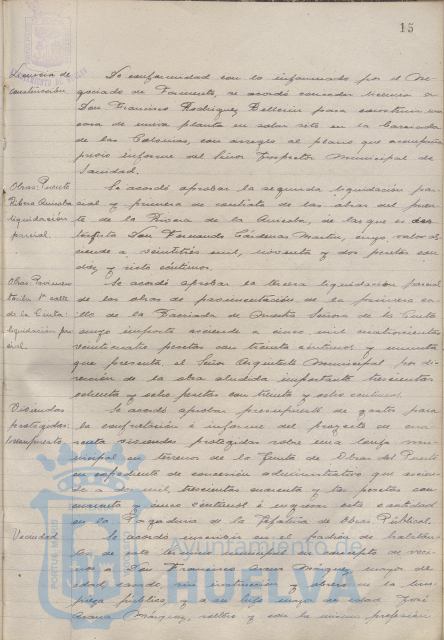 15
Licencia de
construcción
De conformidad con lo informado por el Ne-
gociado de Fomento, se acordó conceder licencia a
Don Francisco Rodríguez Pellerín para construir una
casa de nueva planta en solar sito en la Barriada
de las Colonias, con arreglo al plano que acompaña
previo informe del Señor Inspector Municipal de
Sanidad.
Obras: Puente
Ribera Anicoba
liquidación
parcial.
Se acordó aprobar la segunda liquidación par-
cial y primera de contrata de las obras del puen-
te de la Ribera de la Anicoba, de las que es
Don Fernando Cárdenas Martín, cuyo valor as-
ciende a veintitrés mil, noventa y dos pesetas con
y siete céntimos.
Obras: Pavimen-
tación 1ª calle
de la Cinta:
liquidación par-
cial.
Se acordó aprobar la tercera liquidación parcial
de las obras de pavimentación de la primera ca-
lle de la Barriada de Nuestra Señora de la Cinta
cuyo importe asciende a cinco mil cuatrocientas
veinticuatro pesetas con treinta céntimos y minuta
que presenta el Señor Arquitecto Municipal por di-
rección de la obra aludida importante trescientas
ochenta y ocho pesetas con treinta y ocho céntimos.
Viviendas
protegidas:
Presupuesto
Se acordó aprobar presupuesto de gastos para
la confrontación é informe del proyecto de cua-
renta viviendas protegidas sobre una
en terrenos de la Junta de Obras del Puerto
en expediente de concesión administrativa que ascien-
de a mil, trescientas cuarenta y tres pesetas con
cuarenta y cinco céntimos é ingresar esta cantidad
en la Pagaduría de la Jefatura de Obras Públicas.
Vecindad
Se acordó inscribir en el padrón de habitan-
tes de este término municipal en concepto de veci-
nos a Don Francisco Márquez, mayor de
edad, casado, sin instrucción y obrero de la lim-
pieza pública, y a su hijo mayor de edad José
Márquez, soltero y con la misma profesión
Ayuntamiento de
HUELVA